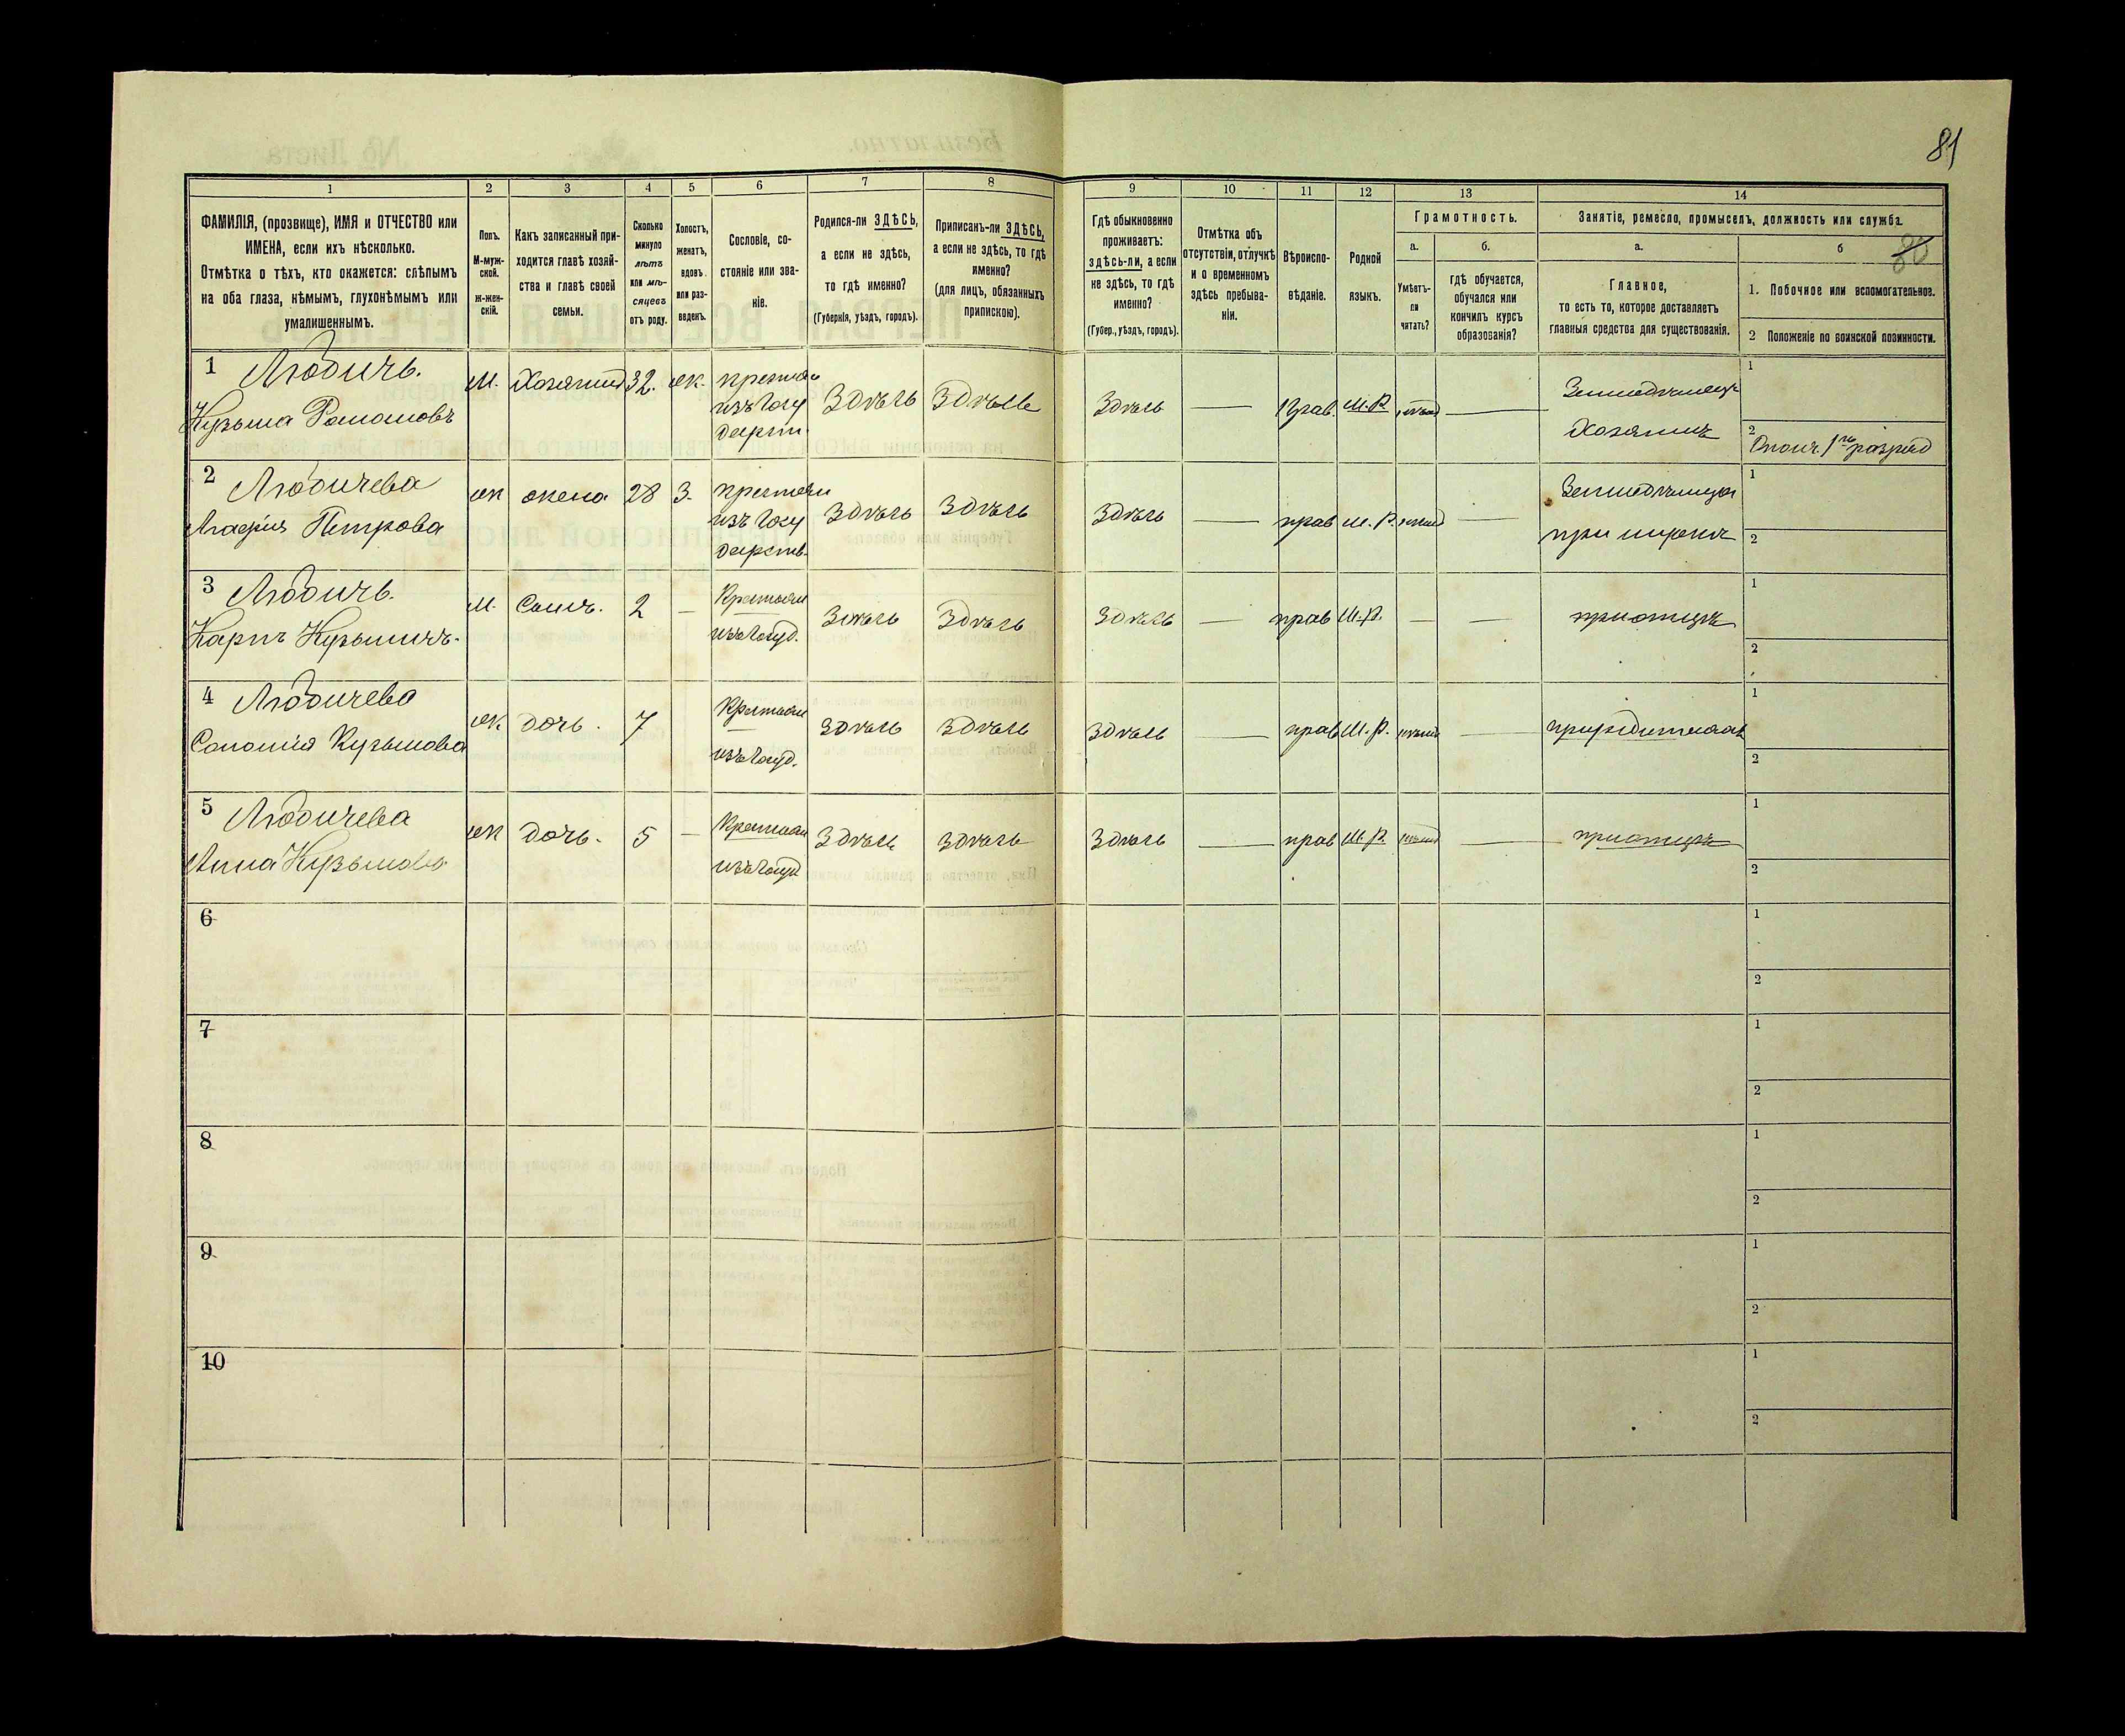 81
1 2 3 4 5 6 7 8 9 10 11 12 13 14
ФАМИЛІЯ, (прозвище), ИМЯ и ОТЧЕСТВО или
ИМЕНА, если ихъ нѣсколько.
Отмѣтка о тѣхъ, кто окажется: слѣпымъ
на оба глаза, нѣмымъ, глухонѣмымъ или
умалишеннымъ.
Полъ.
М-муж-
ской.
ж-жен-
скій.
Какъ записанный при-
ходится главѣ хозяй-
ства и главѣ своей
семьи.
Сколько
минуло
лѣтъ
или мѣ-
сяцевъ
отъ роду.
Холостъ,
женатъ,
вдовъ
или раз-
веденъ.
Сословіе, со-
стояніе или зва-
ніе.
Родился-ли ЗДѢСЬ,
а если не здѣсь,
то гдѣ именно?
(Губернія, уѣздъ, городъ).
Приписанъ-ли ЗДѢСЬ,
а если не здѣсь, то гдѣ
именно?
(для лицъ, обязанныхъ
припискою).
Гдѣ обыкновенно
проживаетъ:
здѣсь-ли, а если
не здѣсь, то гдѣ
именно?
(Губер., уѣздъ, городъ).
Отмѣтка объ
отсутствіи, отлучкѣ
и о временномъ
здѣсь пребыва-
ніи.
Вѣроиспо-
вѣданіе.
Родной
языкъ.
Грамотность.
а.
Умѣетъ-
ли
читать?
б.
гдѣ обучается,
обучался или
кончилъ курсъ
образованія?
Занятіе, ремесло, промыселъ, должность или служба.
а.
Главное,
то есть то, которое доставляетъ
главныя средства для существованія.
б
80
1. Побочное или вспомогательное.
2 Положеніе по воинской повинности.
1 Любичъ.
Кузьма Романовъ
М. Хозяинъ 32. ж. крестьян
изъ госу
дарств.
Здѣсь Здѣсь Здѣсь — прав. М.Р. — Земледѣлецъ
Хозяинъ
1
2 Ополч. 1го разряд
2 Любичева
Марія Петрова
ж жена 28 З. крестьян
изъ госу
дарств.
Здѣсь Здѣсь Здѣсь — прав М.Р. — Земледѣлица
при мужѣ
1
2
3 Любичъ.
Карпъ Кузьмичъ.
М. Сынъ. 2 — Крестьян
изъ госуд.
Здѣсь Здѣсь Здѣсь — прав М.Р. — — при отцѣ
1
2
4 Любичева
Соломія Кузьмова
ж дочь. 7 Крестьян
изъ госуд.
Здѣсь Здѣсь Здѣсь — прав М.Р. —
1
2
5 Любичева
Анна Кузьмова
ж дочь. 5 — Крестьян
изъ госуд
Здѣсь Здѣсь Здѣсь — прав М.Р. — при отцѣ
1
2
6
1
2
7
1
2
8
1
2
9
1
2
10
1
2